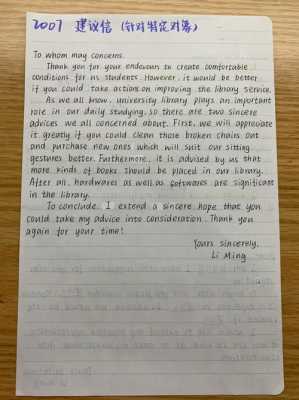 2007 建议信 (针对特定对象)
To whom may concerns.
Thank you for your endeavour to create comfortable
conditions for us students. However, it would be better
if you could take actions on improving the library service.
As we all know, university library plays an important
role in our daily studying, so there are two sincere
advices we all concerned about. First, we will appreciate
it greatly if you could clean those broken chairs out
and purchase new ones which will suit our sitting
gestures better. Furthermore, it is advised by us that
more kinds of books should be placed in our library.
After all, hardwares as well as softwares are significant
in the library.
To conclude, I extend a sincere hope that you
could take my advice into consideration. Thank you
again for your time!
Yours sincerely,
Li Ming